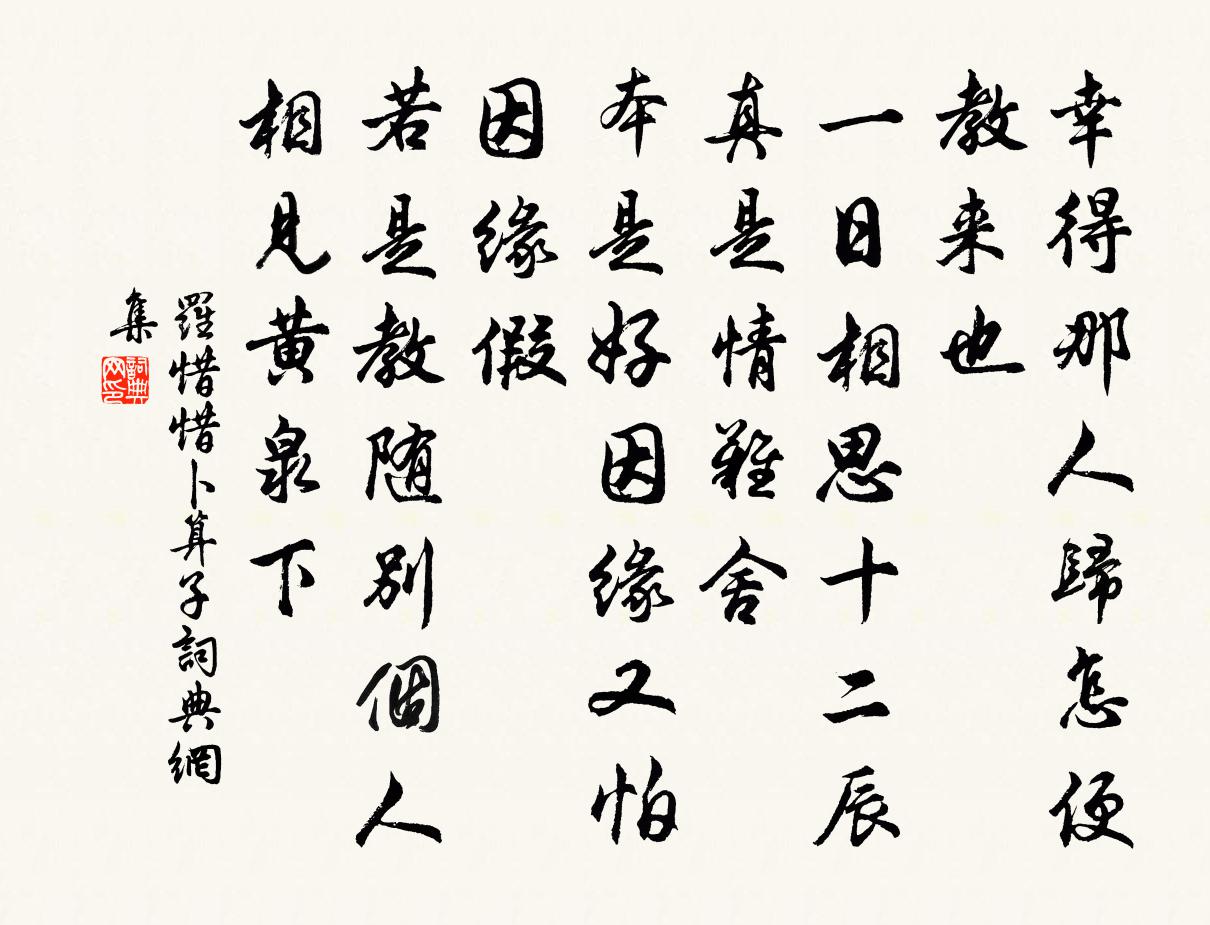 幸得那人歸怎便
教来也
一日相思十二辰
真是情難舍
本是好因缘又怕
因缘假
若是教随别個人
相見黄泉下
羅惜惜卜算子詞典網
集
詞典
网印